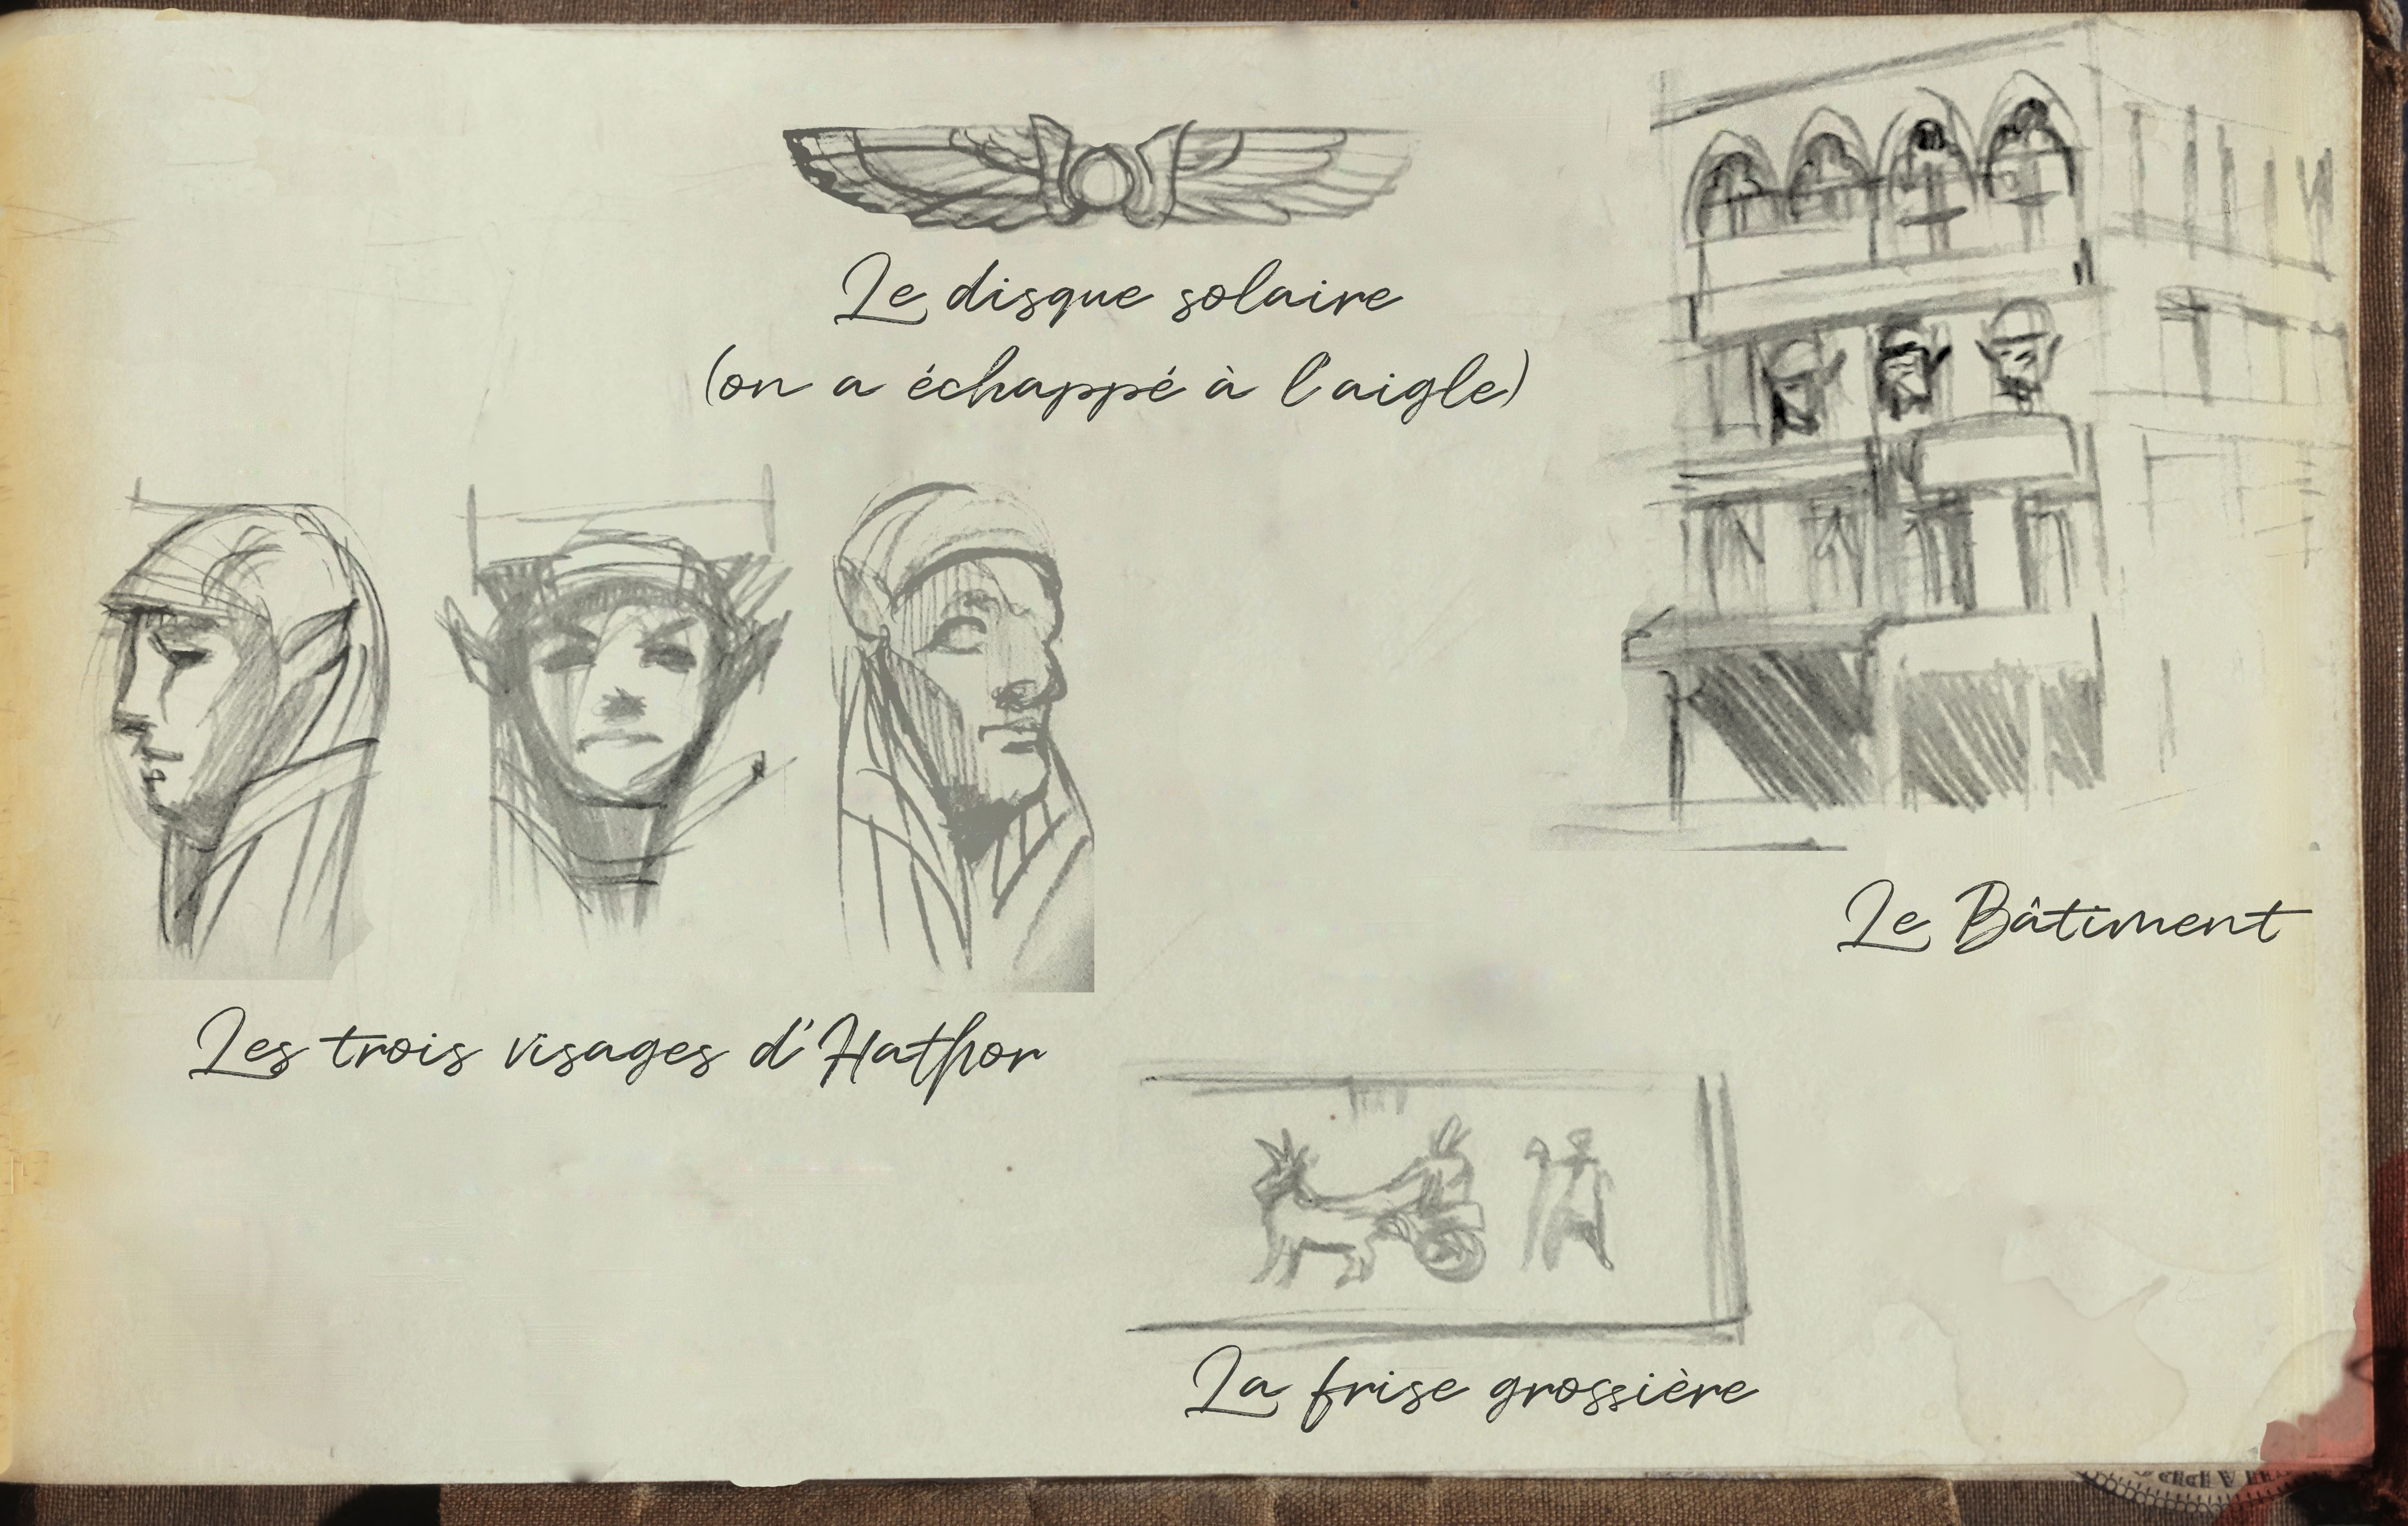 Le disque solaire
(on a échappé à l'aigle)
Le Bâtiment
Les trois visages d'Hathor
La frise grossière